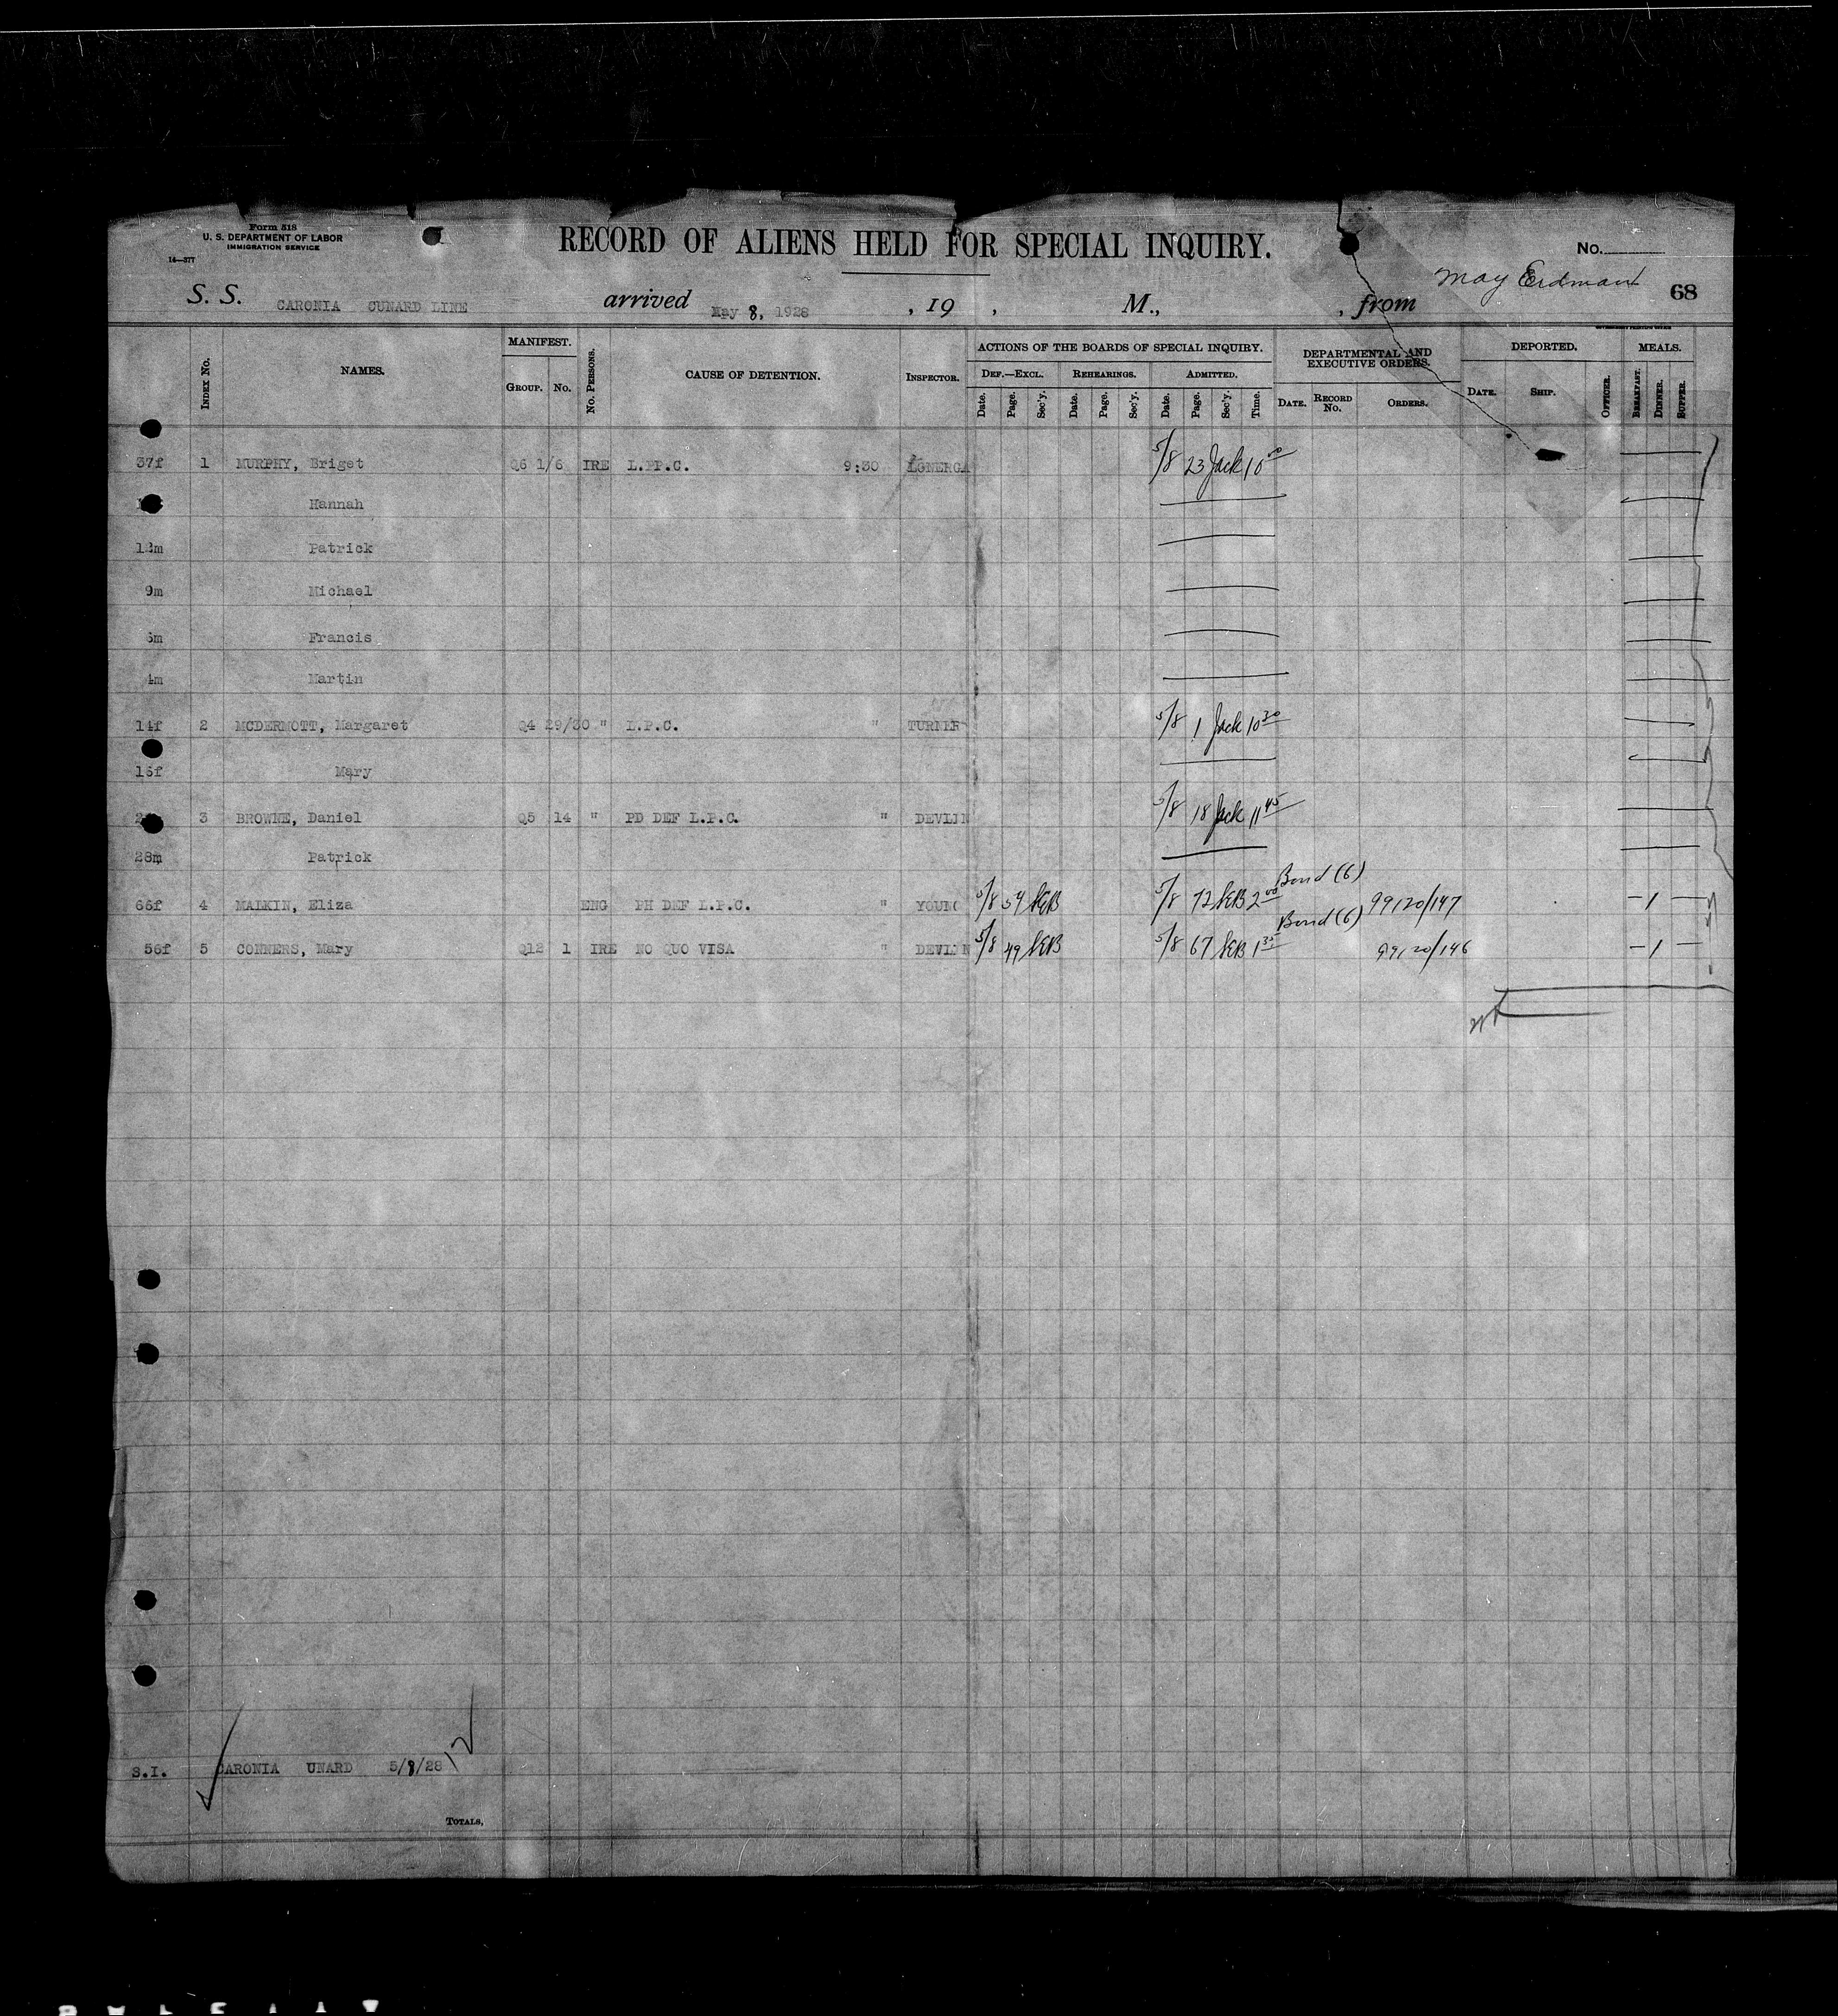 Form 518
U. S. DEPARTMENT OF LABOR
IMMIGRATION SERVICE
14—377
RECORD OF ALIENS HELD FOR SPECIAL INQUIRY.
No.
May Erdman
68
S. S. CARONIA CUNARD LINE arrived May 8, 1928 , 19 , M., , from
Index No. NAMES. MANIFEST. Group. No. No. Persons. CAUSE OF DETENTION. Inspector. ACTIONS OF THE BOARDS OF SPECIAL INQUIRY. DEPARTMENTAL AND EXECUTIVE ORDERS. DEPORTED. MEALS.
Def.—Excl. Rehearings. Admitted.
Date. Page. Sec'y. Date. Page. Sec'y. Date. Page. Sec'y. Time. Date. Record No. Orders. Date. Ship. Officer. Breakfast. Dinner. Supper.
37f 1 MURPHY, Briget Q6 1/6 IRE L.PP.C. 9:30 5/8 23 Jack 10 00
Hannah
12m Patrick
9m Michael
Francis
4m Martin
14f 2 MCDERMOTT, Margaret Q4 29/30 " L.P.C. " TURNER 5/8 1 Jack 10 30
Mary
3 BROWNE, Daniel Q5 14 " PD DEF L.P.C. " DEVLIN 5/8 18 Jack 11 45
28m Patrick
66f 4 MALKIN, Eliza ENG PH DEF L.P.C. " YOUNG 5/8 54 SEB 5/8 72 SEB 2 00 Bond (6) 99120/147 — 1 —
56f 5 CONNERS, Mary Q12 1 IRE NO QUO VISA " DEVLIN 5/8 49 SEB 5/8 67 SEB 1 35 Bond (6) 99120/146 — 1 —
S.I. CARONIA UNARD 5/8/28 12
Totals,